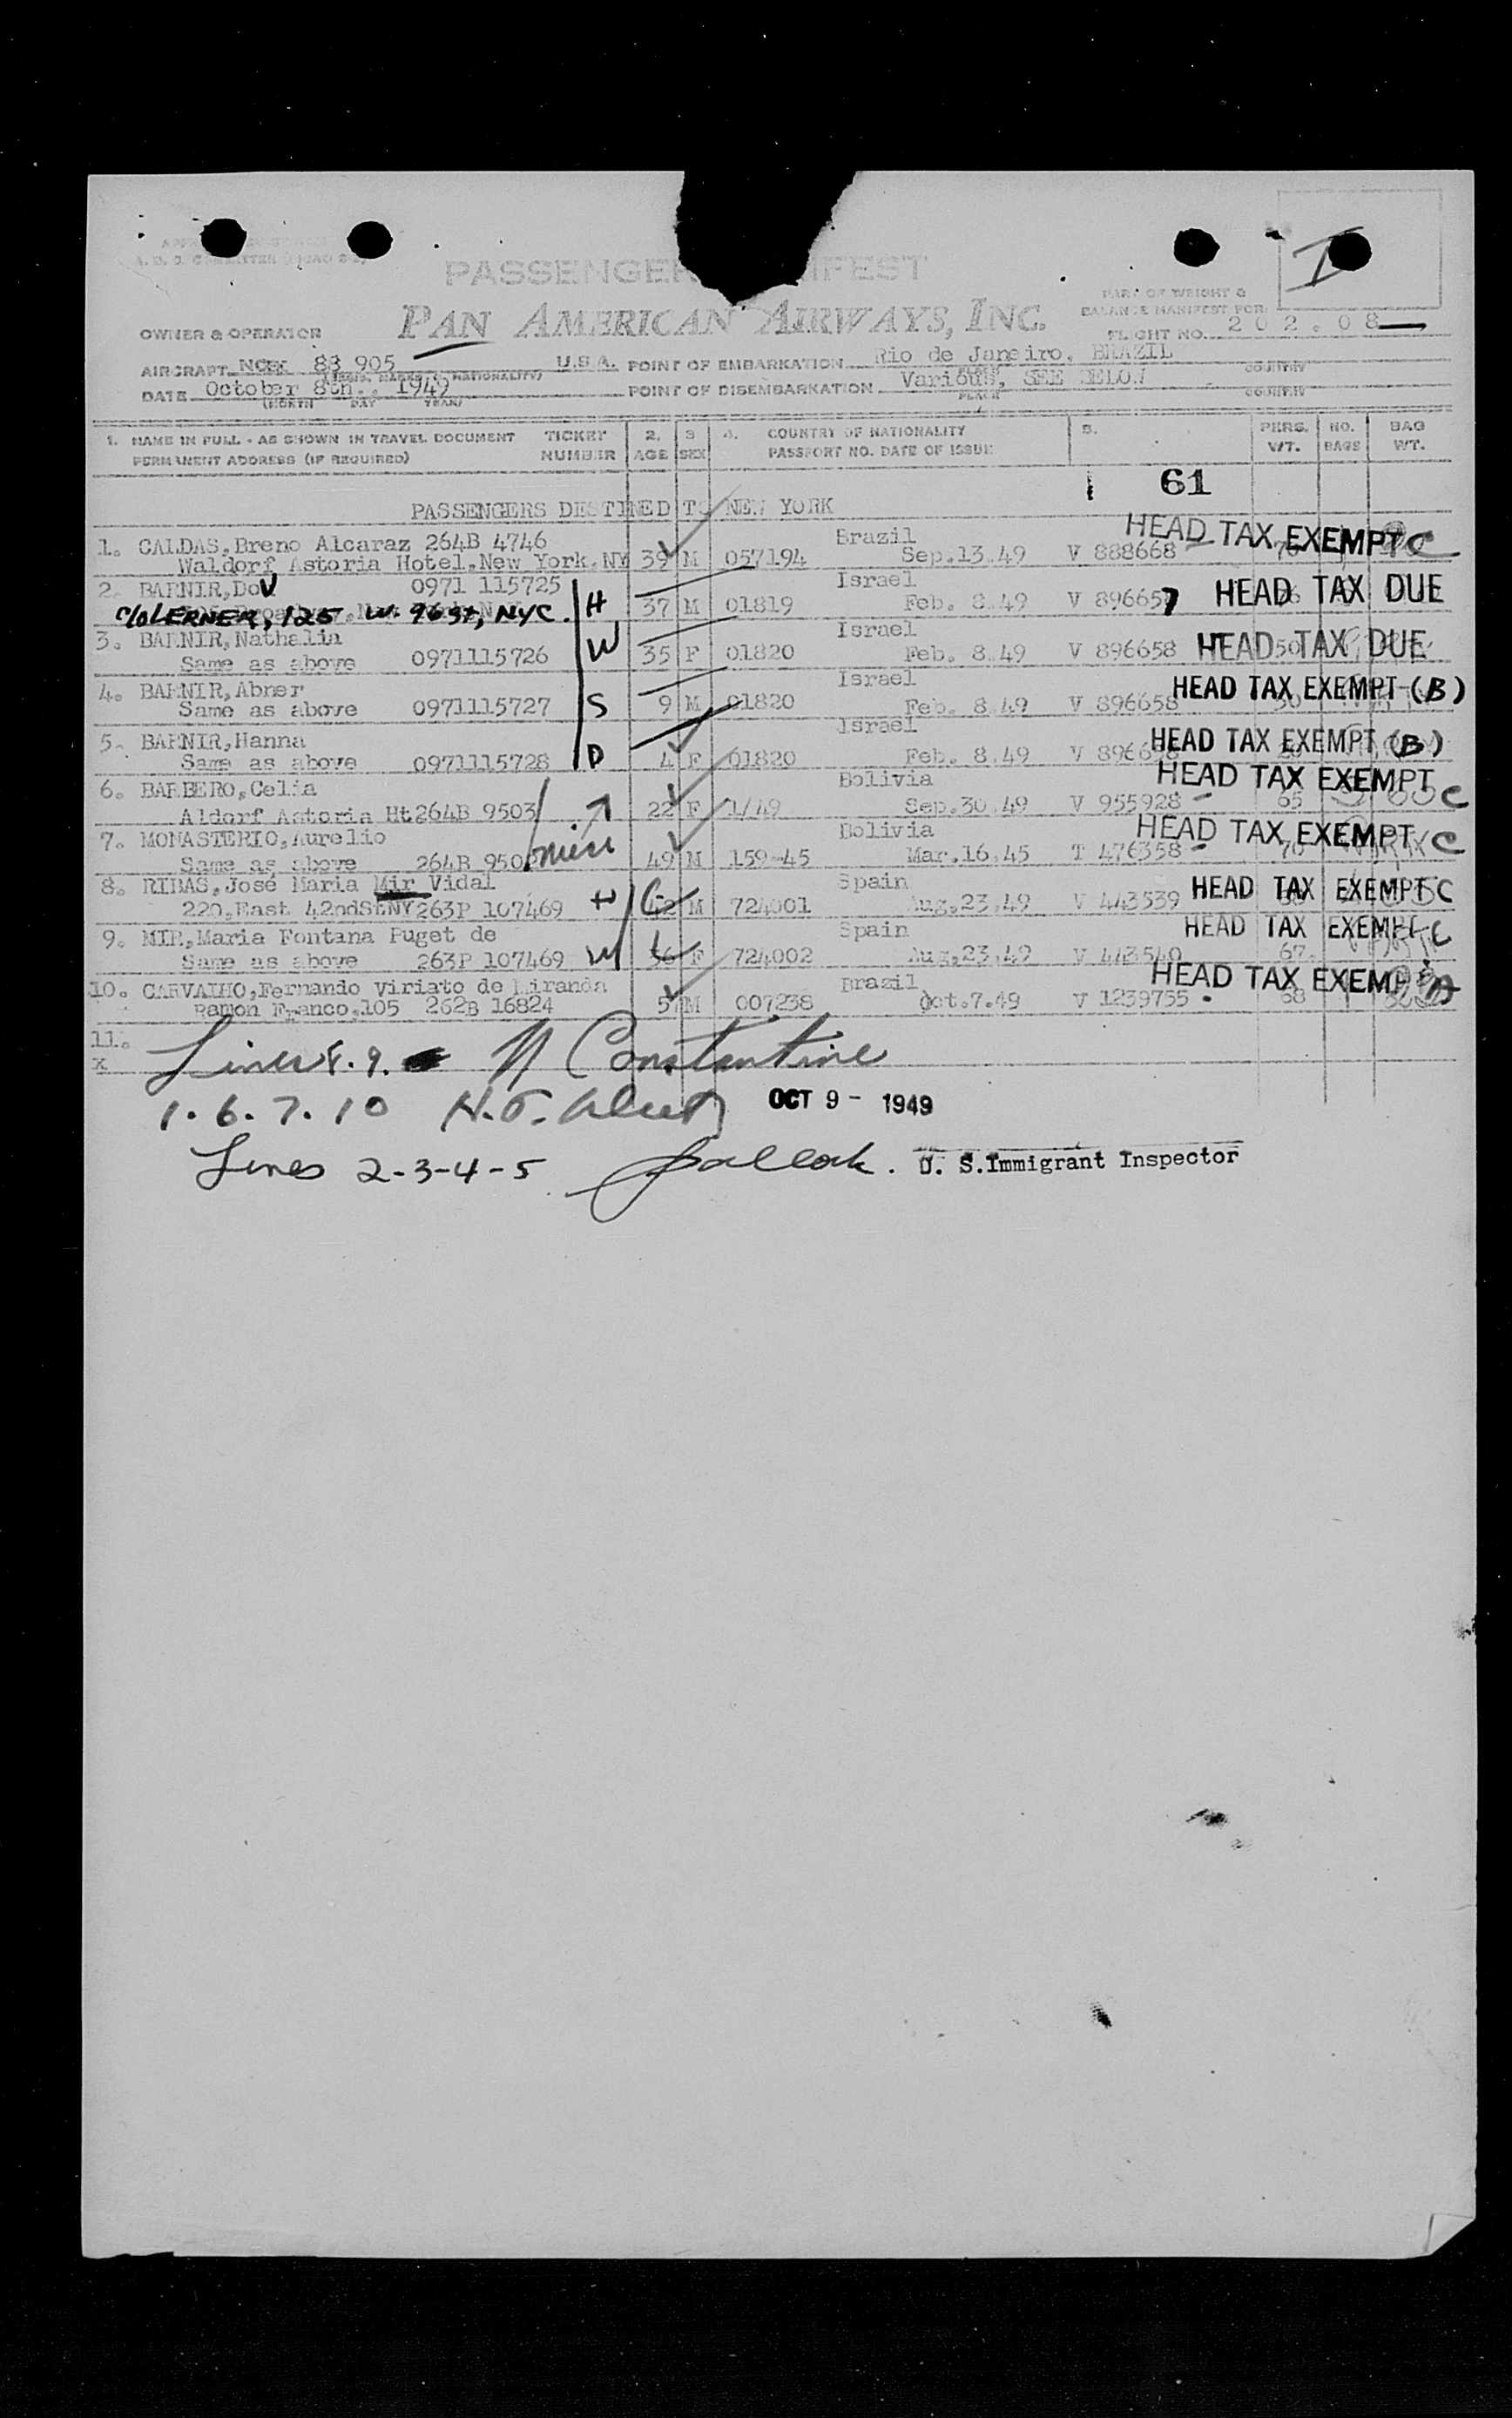 PASSENGER MANIFEST
PAN AMERICAN AIRWAYS, INC.
PART OF WEIGHT &
BALANCE MANIFEST FOR
FLIGHT NO. 202.08
OWNER & OPERATOR
AIRCRAFT 88 905 U.S.A. POINT OF EMBARKATION Rio de Janeiro, BRAZIL
(REGIS. MARKS & NATIONALITY) PLACE COUNTRY
DATE October 8th., 1949 POINT OF DISEMBARKATION Various, SEE BELOW
(MONTH DAY YEAR) PLACE COUNTRY
1. NAME IN FULL - AS SHOWN IN TRAVEL DOCUMENT TICKET 2. 3 4. COUNTRY OF NATIONALITY 5. PERS. NO. BAG
PERMANENT ADDRESS (IF REQUIRED) NUMBER AGE SEX PASSPORT NO. DATE OF ISSUE WT. BAGS WT.
61
PASSENGERS DESTINED TO NEW YORK
1. CALDAS, Breno Alcaraz 264B 4746 Brazil HEAD TAX EXEMPT C
Waldorf Astoria Hotel, New York, NY 39 M 057194 Sep.13.49 V 888668
2. BARNIR, Dov 0971 115725 Israel HEAD TAX DUE
c/o LERNER, 125 W. 96 St, NYC. H 37 M 01819 Feb. 8.49 V 896657
3. BARNIR, Nathalia Israel HEAD TAX DUE
Same as above 0971115726 W 35 F 01820 Feb. 8.49 V 896658 50
4. BARNIR, Abner Israel HEAD TAX EXEMPT (B)
Same as above 0971115727 S 9 M 01820 Feb. 8.49 V 896658 30
5. BARNIR, Hanna Israel HEAD TAX EXEMPT (B)
Same as above 0971115728 D 4 F 01820 Feb. 8.49 V 896658
6. BARBERO, Celia Bolivia HEAD TAX EXEMPT C
Aldorf Astoria Ht 264B 9503 22 F 1/49 Sep.30.49 V 955928 65
7. MONASTERIO, Aurelio Bolivia HEAD TAX EXEMPT C
Same as above 264B 950 49 M 159-45 Mar.16.45 T 476358 70
8. RIBAS, José Maria Mir Vidal Spain HEAD TAX EXEMPT C
220, East 42ndSt NY 263P 107469 H M 724001 Aug.23.49 V 443539
9. MIR, Maria Fontana Puget de Spain HEAD TAX EXEMPT C
Same as above 263P 107469 W F 724002 Aug.23.49 V 443540 67
10. CARVALHO, Fernando Viriato de Miranda Brazil HEAD TAX EXEMPT A
Ramon Franco, 105 262B 16824 M 007238 Oct.7.49 V 1239755 68
11.
x
Lines 8. 9. N Constantine
1. 6. 7. 10 OCT 9 - 1949
Lines 2-3-4-5 U. S. Immigrant Inspector